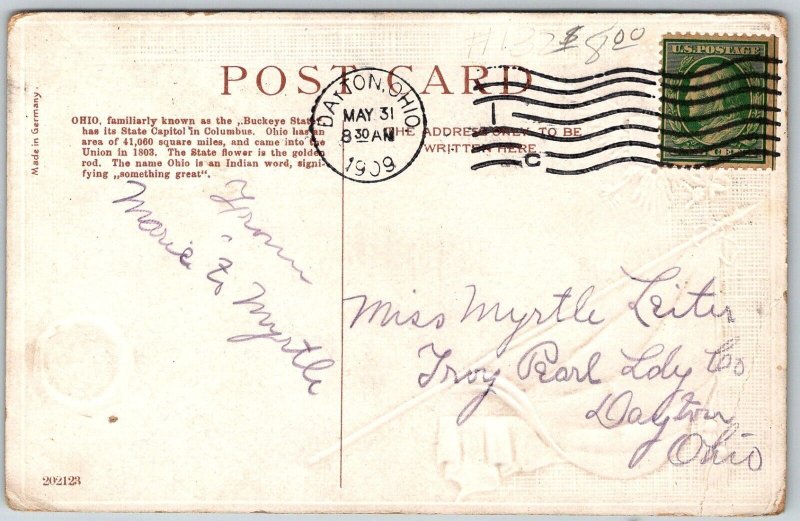 # 132 $ 8.00
U.S. POSTAGE
POST CARD
DAYTON, OHIO
MAY 31
8 30 AM
1909
1
C
Made in Germany.
OHIO, familiarly known as the „Buckeye State
has its State Capitol in Columbus. Ohio has an
area of 41,060 square miles, and came into the
Union in 1803. The State flower is the golden
rod. The name Ohio is an Indian word, signi-
fying „something great“.
THE ADDRESS ONLY TO BE
WRITTEN HERE
From
Marie to Myrtle
Miss Myrtle Leiter
Troy Pearl Ldy Co
Dayton
Ohio
202123